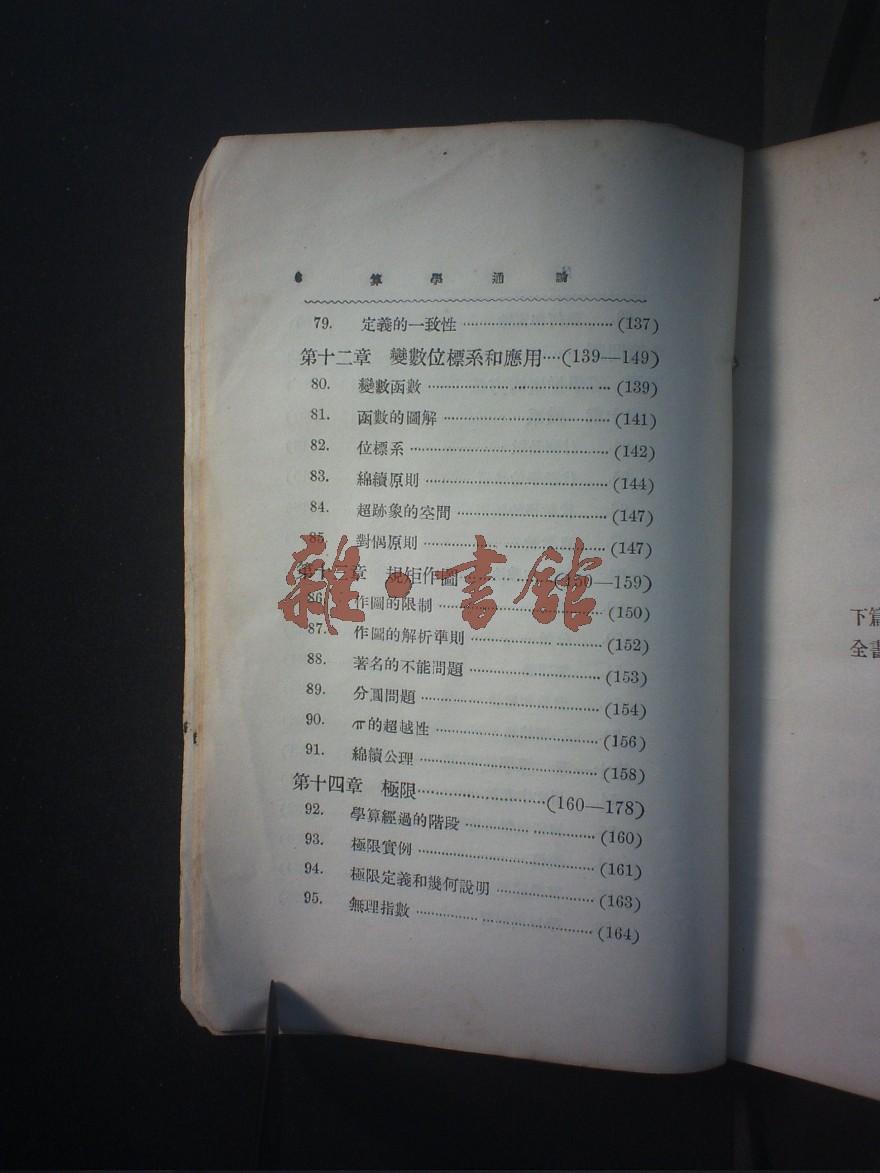 6 算學通論
79. 定義的一致性 (137)
第十二章 變數位標系和應用 (139—149)
80. 變數函數 (139)
81. 函數的圖解 (141)
82. 位標系 (142)
83. 綿續原則 (144)
84. 超跡象的空間 (147)
85. 對偶原則 (147)
第十三章 規矩作圖 (150—159)
86. 作圖的限制 (150)
87. 作圖的解析準則 (152)
88. 著名的不能問題 (153)
89. 分圓問題 (154)
90. π的超越性 (156)
91. 綿續公理 (158)
第十四章 極限 (160—178)
92. 學算經過的階段 (160)
93. 極限實例 (161)
94. 極限定義和幾何說明 (163)
95. 無理指數 (164)
雜·書館
下篇
全書